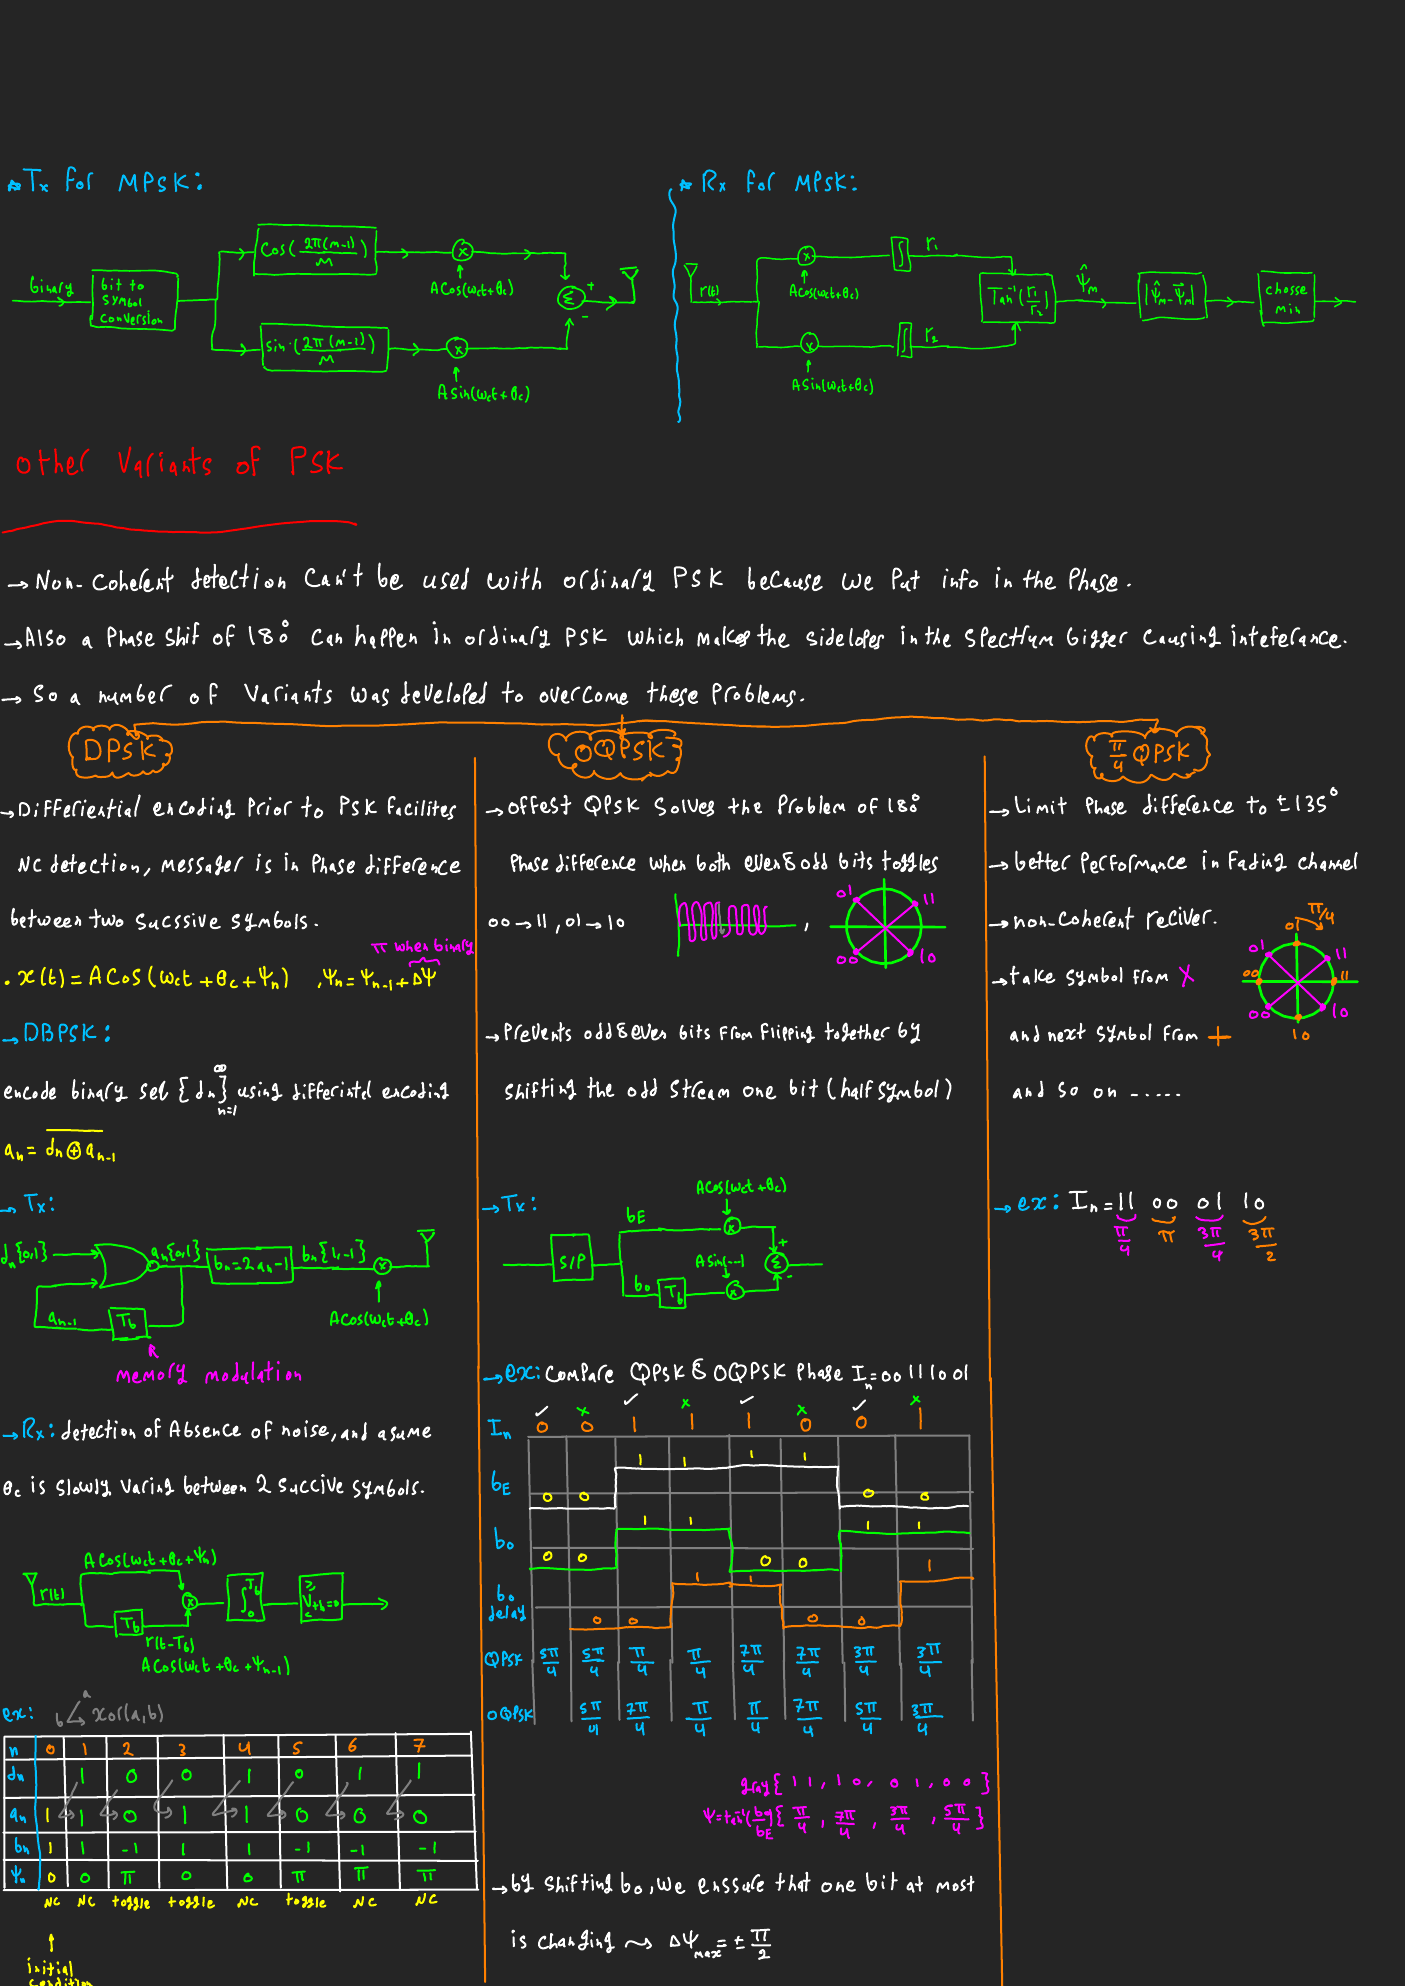 Tx for MPSK:
binary
bit to
symbol
conversion
Cos(2π(m-1)/M)
ACos(ωct+θc)
Sin(2π(m-1)/M)
ASin(ωct+θc)
Σ
+
-
Rx for MPSK:
r(t)
ACos(ωct+θc)
ASin(ωct+θc)
∫
r1
∫
r2
Tan⁻¹(r1/r2)
ψ̂m
|ψ̂m-ψ̄m|
chosse
min
other Variants of PSK
→ Non-Coherent detection Can't be used with ordinary PSK because we Put info in the Phase.
→ Also a Phase shif of 180° can happen in ordinary PSK which makes the sidelopes in the spectrum bigger causing inteferance.
→ So a number of Variants was developed to overcome these Problems.
DPSK
→ Differiential encoding Prior to PSK facilites
NC detection, messager is in Phase difference
between two Sucssive symbols.
π when binary
. x(t) = ACos(ωct + θc + ψn) , ψn = ψn-1 + Δψ
→ DBPSK:
encode binary seb {dn}∞n=1 using differintel encoding
an = \overline{dn ⊕ an-1}
→ Tx:
dn{0,1}
an{0,1}
bn = 2an-1
bn{1,-1}
an-1
Tb
ACos(ωct+θc)
memory modulation
→ Rx: detection of Absence of noise, and asume
θc is slowly Varing between 2 succive symbols.
ACos(ωct+θc+ψn)
r(t)
Tb
r(t-Tb)
ACos(ωct+θc+ψn-1)
∫0Tb
≥
Vth=0
<
ex: b a xor(a,b)
n 0 1 2 3 4 5 6 7
dn 1 0 0 1 0 1 1
an 1 1 0 1 1 0 0 0
bn 1 1 -1 1 1 -1 -1 -1
ψn 0 0 π 0 0 π π π
NC NC toggle toggle NC toggle NC NC
initial
condition
OQPSK
→ offest QPSK Solves the Problem of 180°
Phase difference when both even & odd bits toggles
00→11, 01→10 ,
01 11
00 10
→ Prevents odd & even bits from flipping together by
shifting the odd stream one bit (half symbol)
→ Tx:
S/P
bE
ACos(ωct+θc)
bo
Tb
ASin(---)
Σ
+
-
→ ex: Compare QPSK & OQPSK Phase In=00 11 10 01
✓ × ✓ × ✓ × ✓ ×
In 0 0 1 1 1 0 0 1
bE 0 0 1 1 1 1 0 0
bo 0 0 1 1 0 0 1 1
bo
delay 0 0 1 1 0 0 1
QPSK 5π/4 5π/4 π/4 π/4 7π/4 7π/4 3π/4 3π/4
OQPSK 5π/4 7π/4 π/4 π/4 7π/4 5π/4 3π/4
gray{ 11, 10, 01, 00 }
ψ=tan⁻¹(bo/bE){ π/4, 7π/4, 3π/4, 5π/4 }
→ by shifting bo, we enssure that one bit at most
is changing ⤳ Δψmax = ± π/2
π/4 QPSK
→ Limit Phase difference to ±135°
→ better Performance in Fading channel
→ non-coherent reciver.
→ take symbol from X
and next symbol from +
and so on -----
π/4
01
01 11
00 11
00 10
10
→ ex: In = 11 00 01 10
π/4 π 3π/4 3π/2